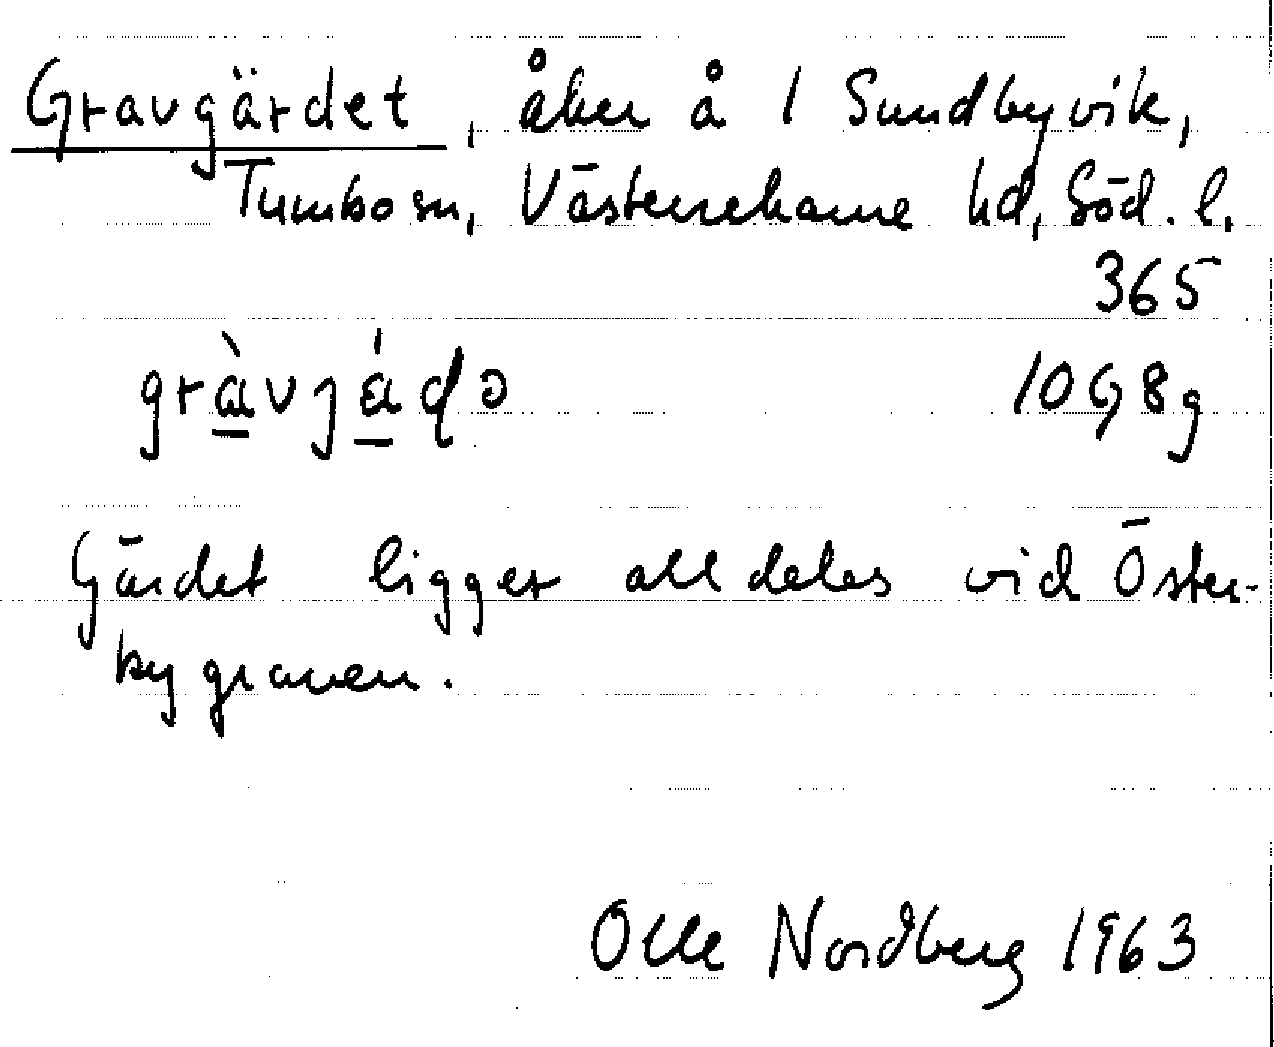 Gravgärdet, åker å 1 Sundbyvik,
Tumbo sn, Västerrekarne hd, Söd. l.
365
10G8g
Gärdet ligger alldeles vid Öster-
bygraven.
Olle Nordberg 1963